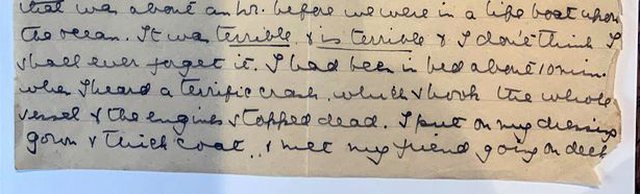 that was about an hr. before we were in a life boat upon
the ocean. It was terrible & is terrible & I don't think I
shall ever forget it. I had been in bed about 10 min.
when I heard a terrific crash, which shook the whole
vessel & the engines stopped dead. I put on my dressing
gown & thick coat, & met my friend going on deck